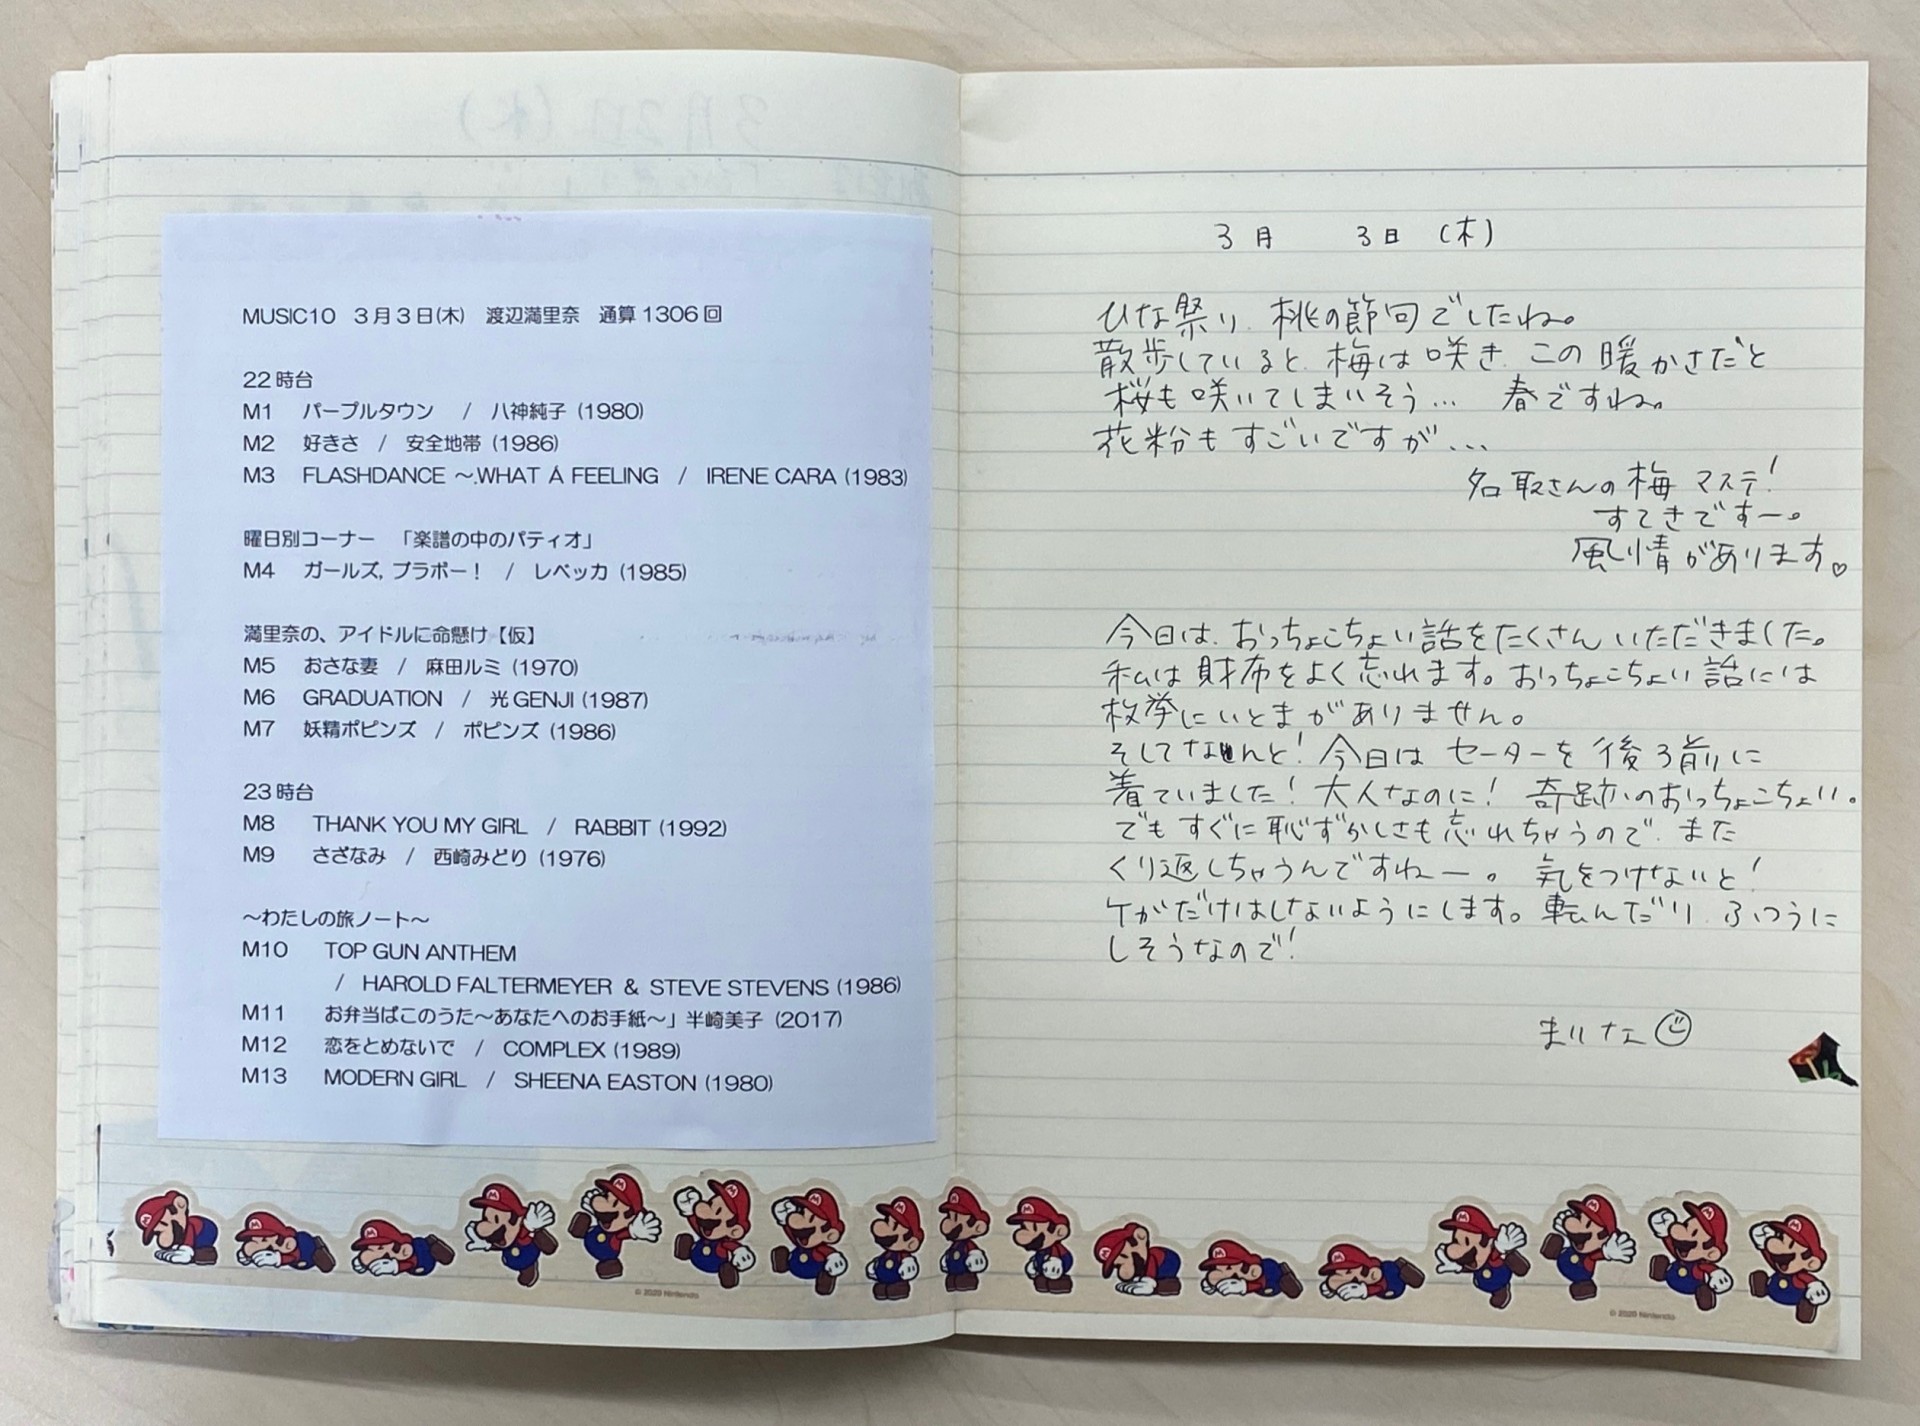 MUSIC10 3月3日(木) 渡辺満里奈 通算1306回
22時台
M1 パープルタウン / 八神純子 (1980)
M2 好きさ / 安全地帯 (1986)
M3 FLASHDANCE ～.WHAT A FEELING / IRENE CARA (1983)
曜日別コーナー 「楽譜の中のパティオ」
M4 ガールズ, ブラボー！ / レベッカ (1985)
満里奈の、アイドルに命懸け【仮】
M5 おさな妻 / 麻田ルミ (1970)
M6 GRADUATION / 光GENJI (1987)
M7 妖精ポピンズ / ポピンズ (1986)
23時台
M8 THANK YOU MY GIRL / RABBIT (1992)
M9 さざなみ / 西崎みどり (1976)
～わたしの旅ノート～
M10 TOP GUN ANTHEM
/ HAROLD FALTERMEYER & STEVE STEVENS (1986)
M11 お弁当ばこのうた～あなたへのお手紙～」半崎美子 (2017)
M12 恋をとめないで / COMPLEX (1989)
M13 MODERN GIRL / SHEENA EASTON (1980)
3月 3日 (木)
ひな祭り、桃の節句でしたね。
散歩していると、梅は咲き、この暖かさだと
桜も咲いてしまいそう… 春ですね。
花粉もすごいですが…
名取さんの梅マステ！
すてきですー。
風情があります♡
今日は、おっちょこちょい話をたくさんいただきました。
私は財布をよく忘れます。おっちょこちょい話には
枚挙にいとまがありません。
そしてなんと！今日はセーターを後ろ前に
着ていました！大人なのに！奇跡のおっちょこちょい。
でもすぐに恥ずかしさも忘れちゃうので、また
くり返しちゃうんですねー。気をつけないと！
ケガだけはしないようにします。転んだり、ふつうに
しそうなので！
まりな
© 2020 Nintendo
© 2020 Nintendo